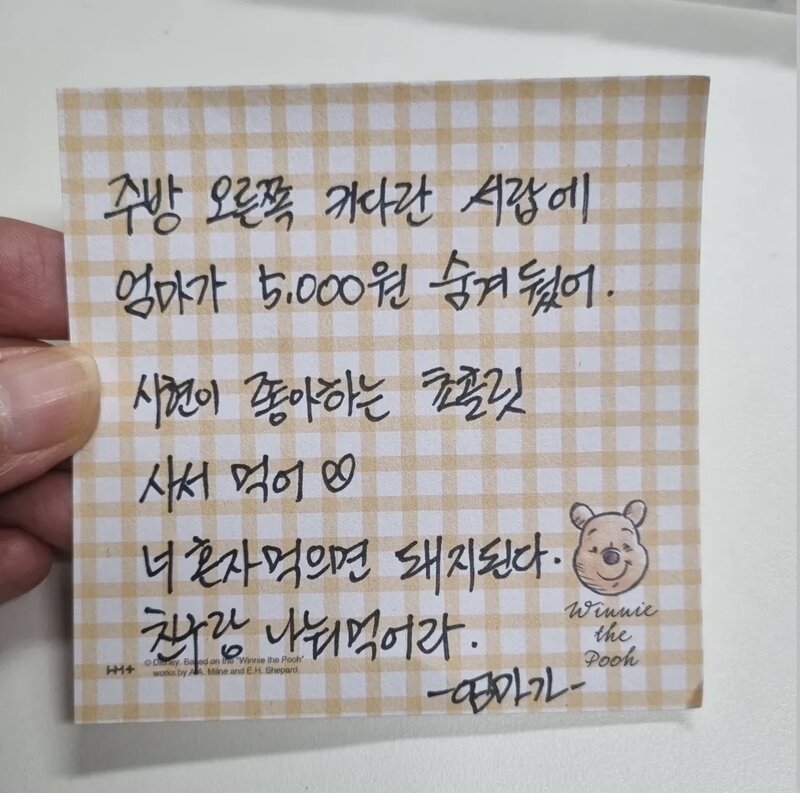 주방 오른쪽 커다란 서랍에
엄마가 5,000원 숨겨뒀어.
시현이 좋아하는 쵸콜릿
사서 먹어♡
너 혼자먹으면 돼지된다.
친구랑 나눠먹어라.
-엄마가-
Winnie
the
Pooh
© Disney. Based on the "Winnie the Pooh"
works by A.A. Milne and E.H. Shepard.